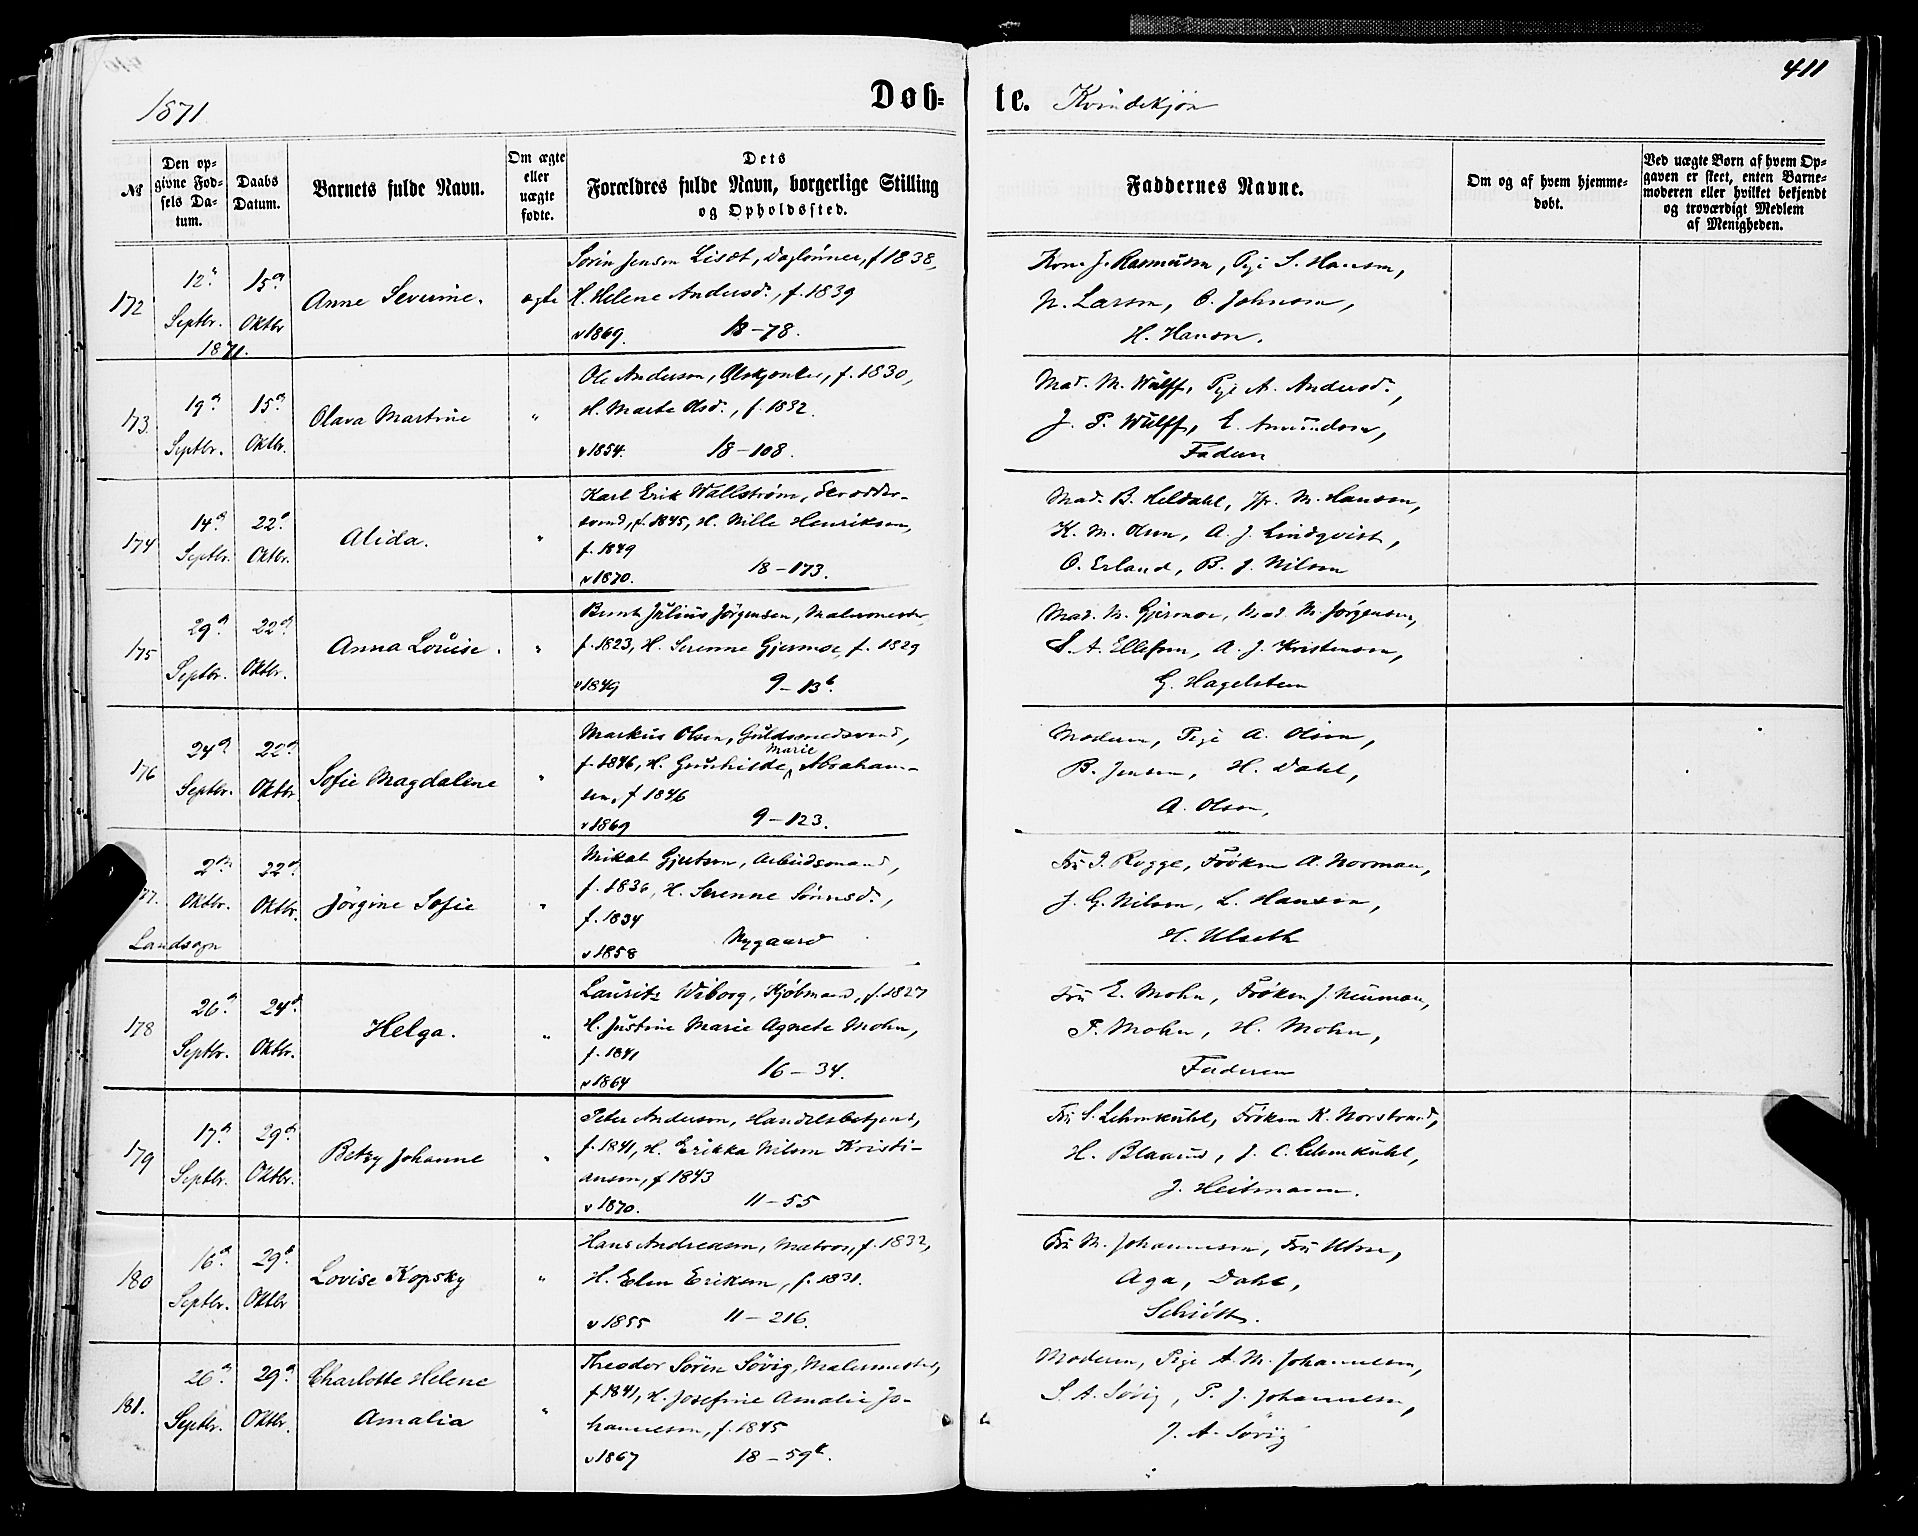 411
1871
Døb-
te. Kvindekjøn
№
Den op-
givne Fød-
sels Da-
tum.
Daabs
Datum.
Barnets fulde Navn.
Om ægte
eller
uægte
fødte.
Dets
Forældres fulde Navn, borgerlige Stilling
og Opholdssted.
Faddernes Navne.
Om og af hvem hjemme-
døbt.
Ved uægte Børn af hvem Op-
gaven er skeet, enten Barne-
moderen eller hvilket bekjendt
og troværdigt Medlem
af Menigheden.
172
12te
Septbr.
1871.
15de
Oktbr
Anne Severine.
ægte
Sørin Jensen Lisæt, Daglønner, f 1838,
H. Helene Andersd., f. 1839
v 1869. 18-78.
Kone J. Rasmusen, Pige S. Hansen,
N. Larsen, O. Johnsen,
H. Hansen.
173
19de
Septbr.
15de
Oktbr.
Olava Martine
"
Ole Andersen, f. 1830,
H. Marte Olsd., f. 1832.
v 1854. 18-108.
Mad. M. Wulff, Pige A. Andersd.,
J. P. Wulff, E. Amundsen,
Faderen
174
14de
Septbr.
22de
Oktbr.
Alida.
"
Karl Erik Wallstrøm, Skrædder-
svend, f. 1845, H. Nille Henriksen,
f. 1849
v 1870. 18-173.
Mad. B. Heldahl, Jfr. M. Hansen,
K. M. Olsen, A. J. Lindqvist,
O. Erland, B. J. Nilsen
175
29de
Septbr.
22de
Oktbr.
Anna Louise.
"
Bernt Julius Jörgensen, Malermester,
f. 1823, H. Serenne Gjermoe, f. 1829
v 1849 9-13b.
Mad. M. Gjermoe, Mad. M. Jørgensen,
S. A. Ellefsen, A. J. Kristensen,
G. Hagelsteen
176
24de
Septbr.
22de
Oktbr.
Sofie Magdalene
"
Markus Olsen, Guldsmedsvend,
Marie
f. 1846, H. Gunhilde Abraham-
sen, f 1846
v 1869 9-123.
Moderen, Pige A. Olsen,
B. Jensen, H. Dahl,
A. Olsen,
77.
2den
Oktbr.
Landsogn
22de
Oktbr.
Jörgine Sofie
"
Mikal Gjertsen, Arbeidsmand,
f. 1836, H. Serenne Simonsd.,
f. 1834
v 1858 Nygaard
Fru J. Rogge, Frøken A. Norman,
J. G. Nilsen, L. Hansen,
H. Ulseth
178
26de
Septbr.
24de
Oktbr.
Helga.
"
Lauritz Wiborg, Kjøbmand, f. 1827
H. Justine Marie Agnete Mohn,
f. 1841
v 1864 16-34.
Fru E. Mohn, Frøken J. Neuman,
P. Mohn, H. Mohn,
Faderen
179
17de
Septbr.
29de
Oktbr.
Betzy Johanne
"
Peter Andersen, Handelsbetjent,
f. 1841, H. Erikka Nilsen Kristi-
ansen, f 1843
v 1870. 11-55
Fru S. Lehmkuhl, Frøken K. Norstrand,
H. Blaauw, J. C. Lehmkuhl,
J. Heitmann.
180
16de
Septbr.
29de
Oktbr
Lovise Kopsky
"
Hans Andreasen, Matros, f. 1832,
H. Elen Eriksen, f. 1831.
v 1855 11-216.
Fru M. Johannesen, Fru Utne,
Aga, Dahl,
Schiøtt.
181.
26de
Septbr.
29de
Oktbr.
Charlotte Helene
Amalia
"
Theodor Sören Sövig, Malermester,
f 1841, H. Josefine Amalie Jo-
hannesen, f. 1845
v 1867 18-59b.
Moderen, Pige A. M. Johannesen,
S. A. Søvig, P. J. Johannesen,
J. A. Sövig